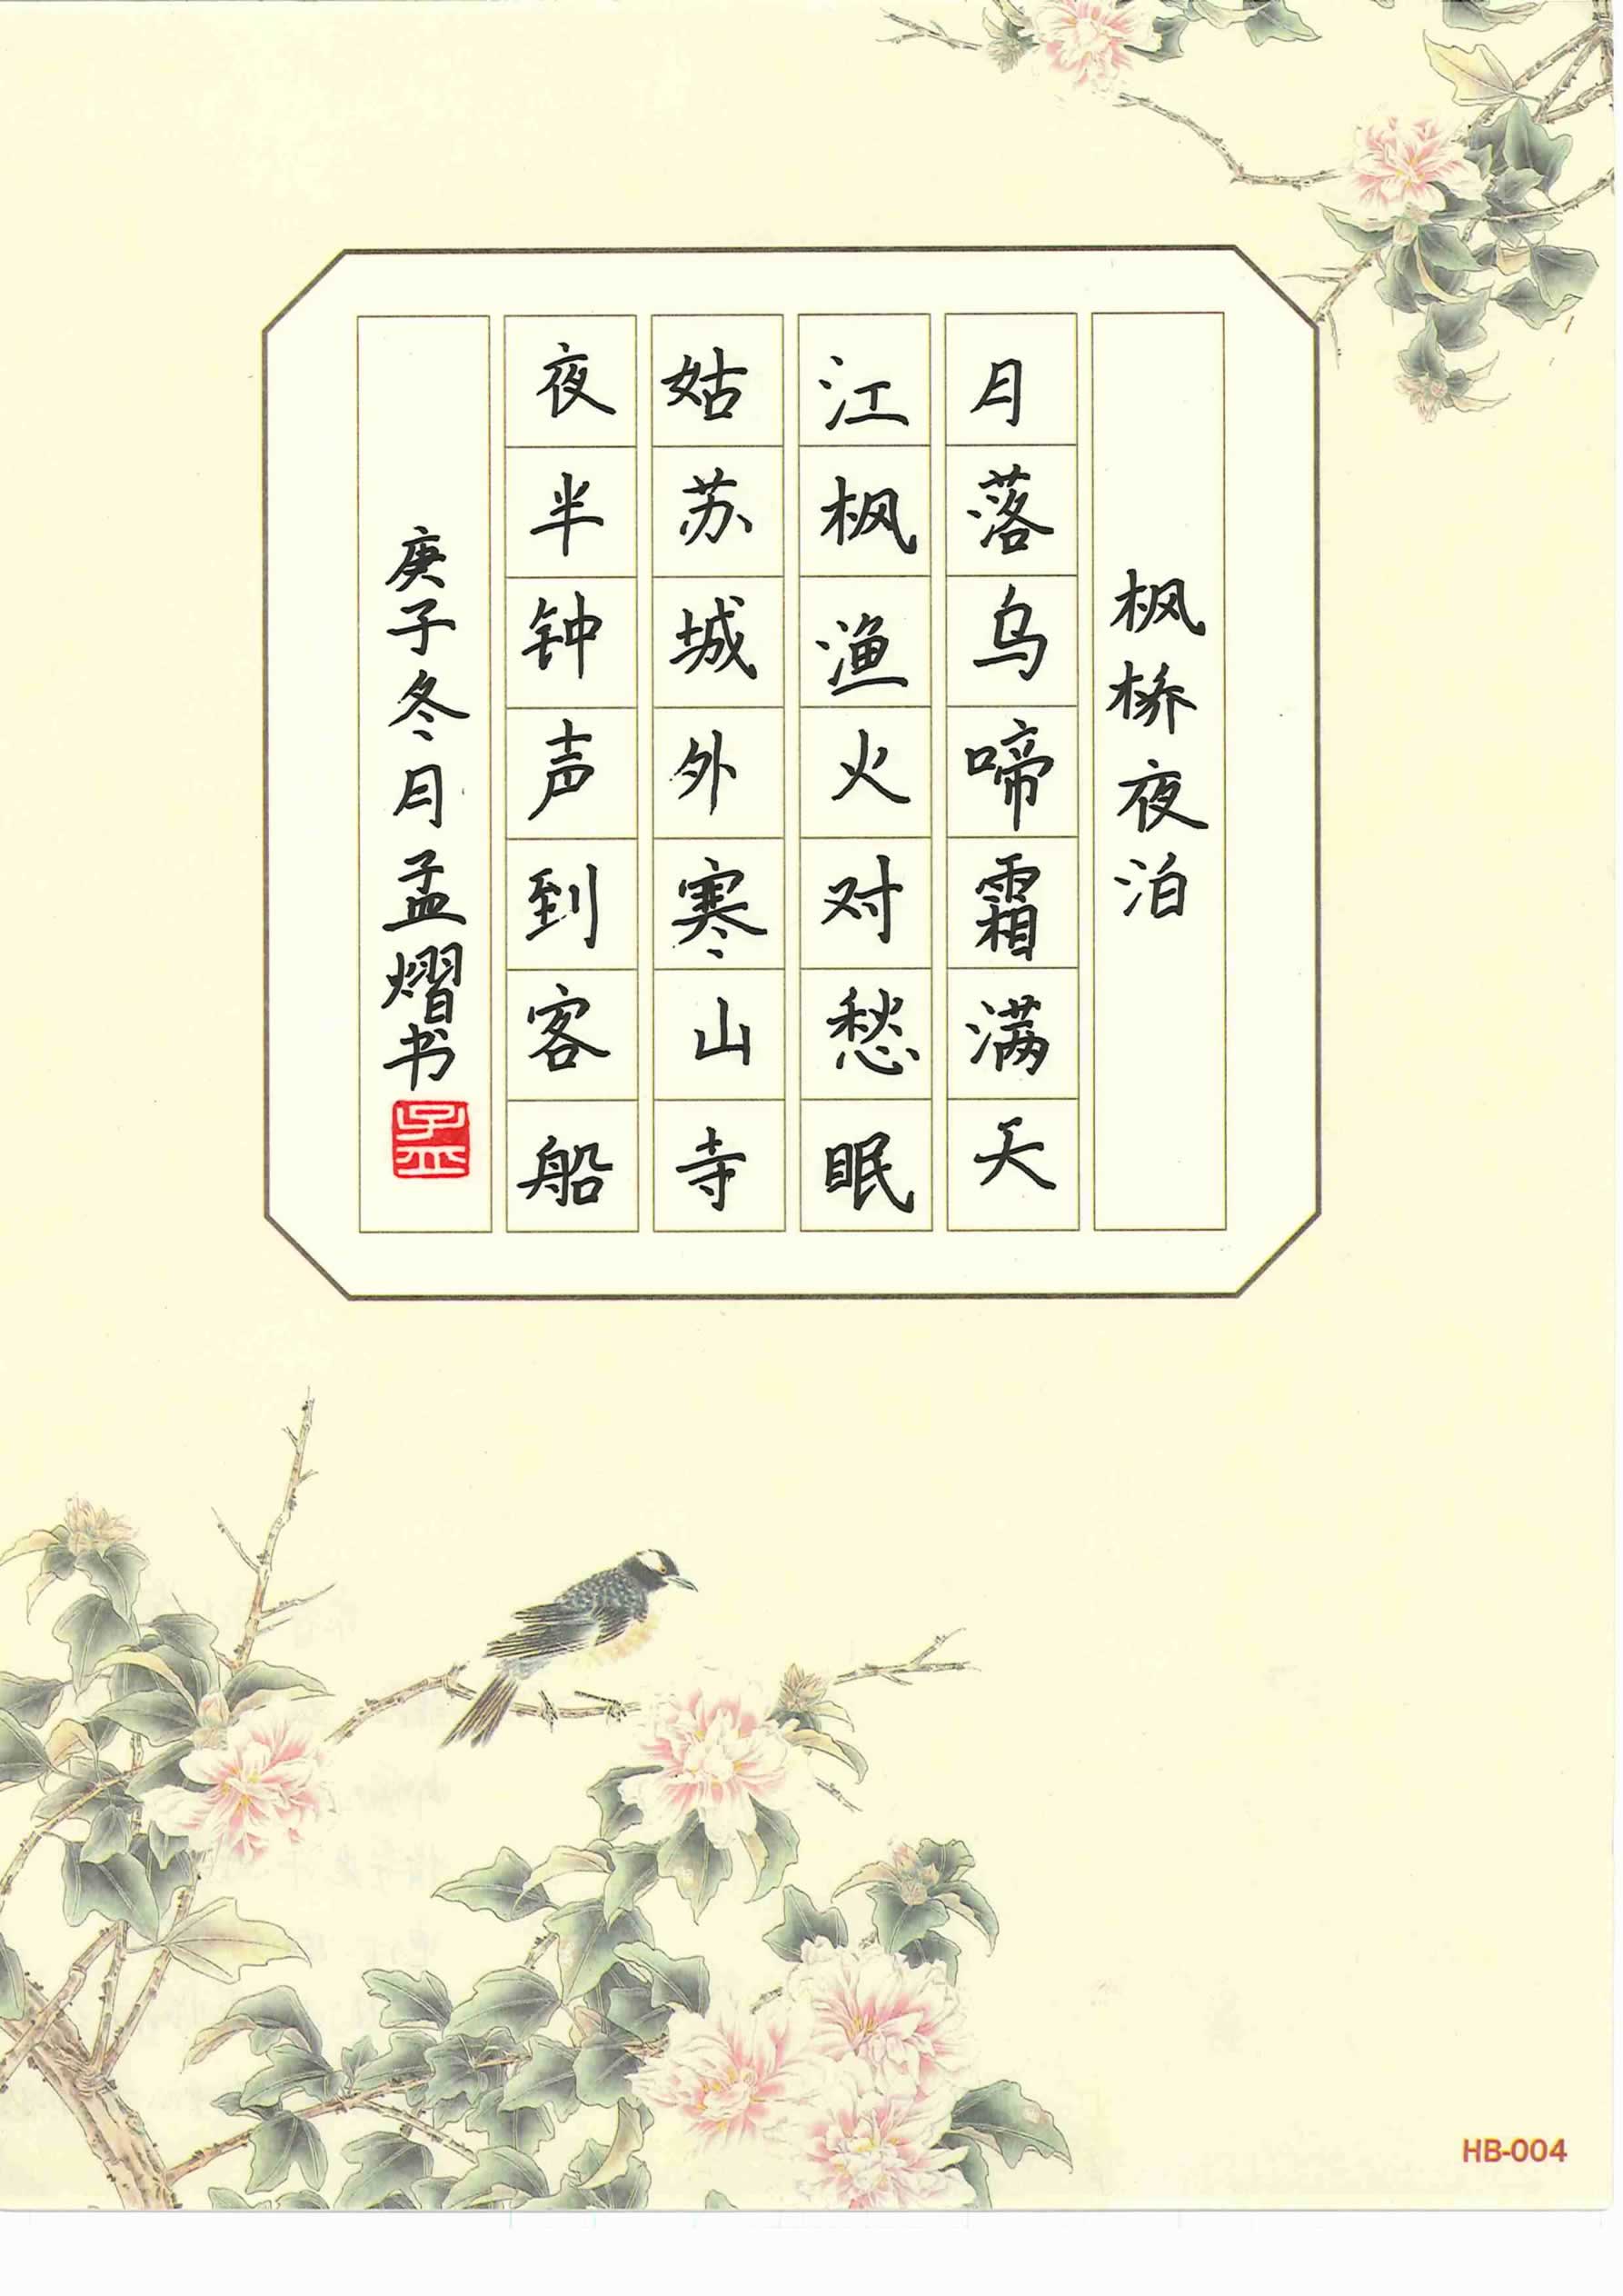 枫桥夜泊
月落乌啼霜满天
江枫渔火对愁眠
姑苏城外寒山寺
夜半钟声到客船
庚子冬月孟熠书
孟
HB-004